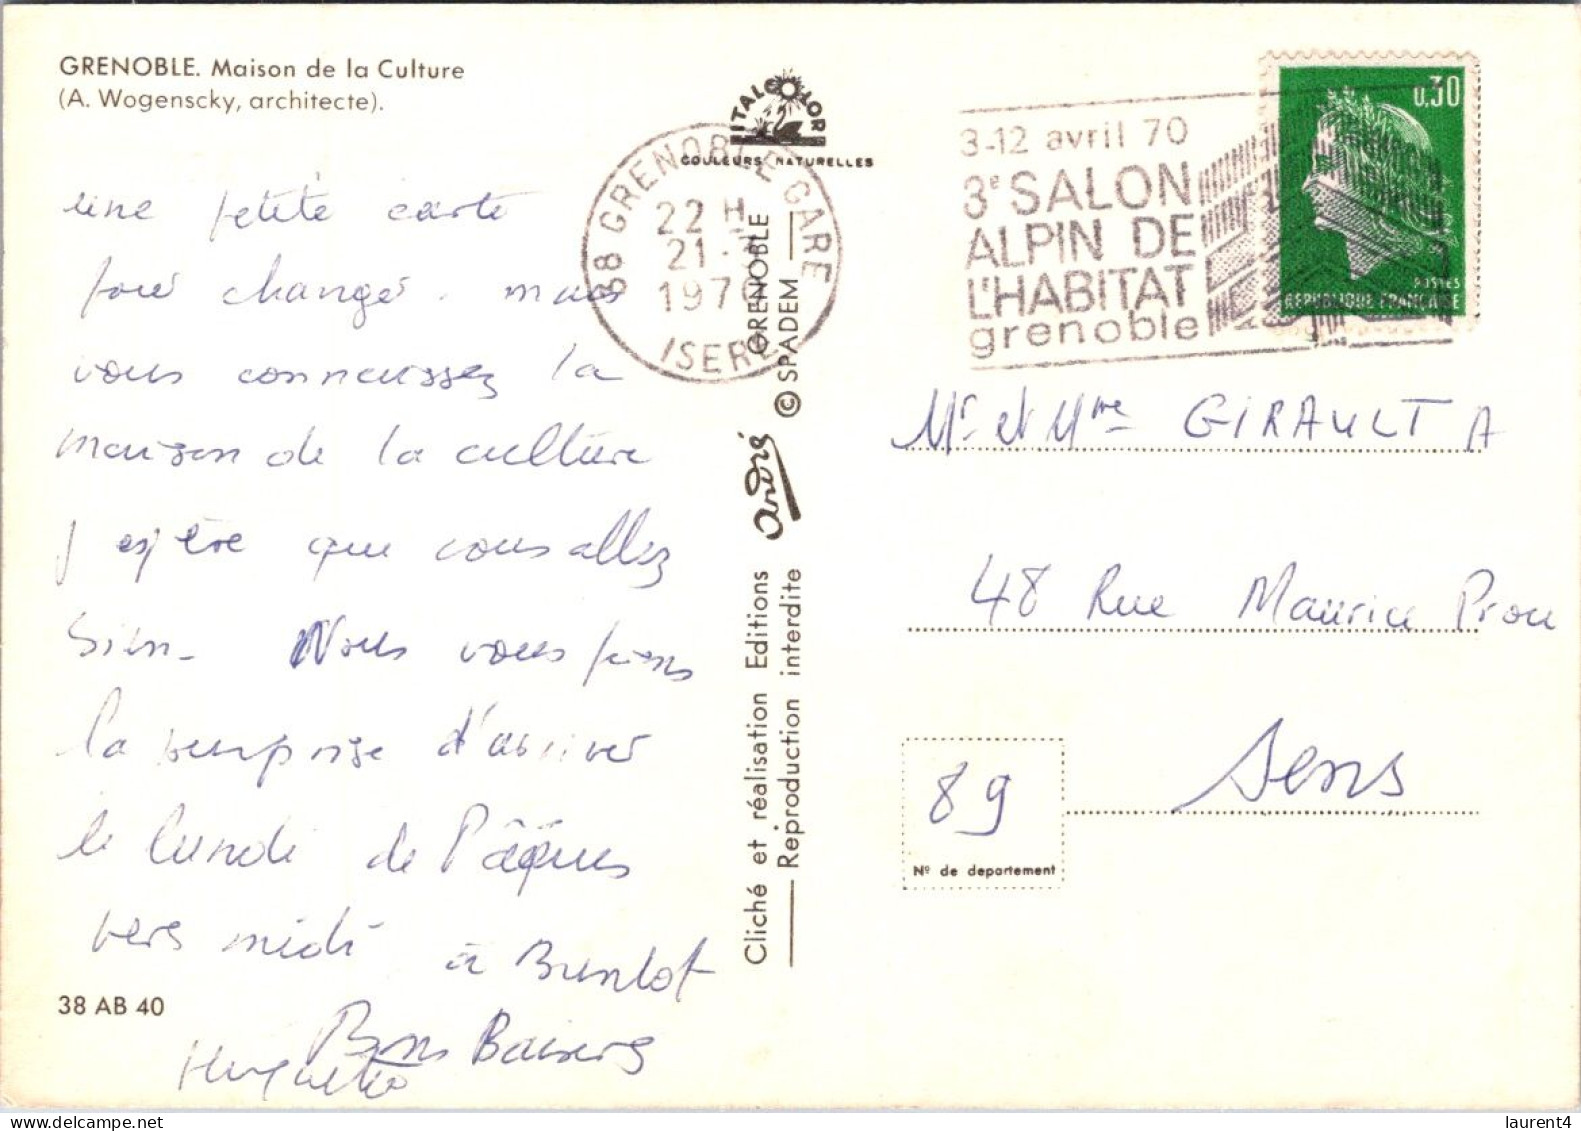 GRENOBLE. Maison de la Culture
(A. Wogenscky, architecte).
une petite carte
pour changer. mais
vous connaissez la
maison de la culture
j'espère que vous allez
bien. Nous vous ferons
la surprise d'arriver
le lundi de Pâques
vers midi
à
Bons Baisers
Huguette
38 AB 40
ITALCOLOR
COULEURS NATURELLES
38 GRENOBLE GARE
22 H
21 -
1970
ISERE
GRENOBLE
© SPADEM
André
Cliché et réalisation Editions
Reproduction interdite
3-12 avril 70
3e SALON
ALPIN DE
L'HABITAT
grenoble
0.30
POSTES
REPUBLIQUE FRANÇAISE
Mr et Mme GIRAULT A
48 Rue Maurice Prou
Sens
89
No de departement
laurent4